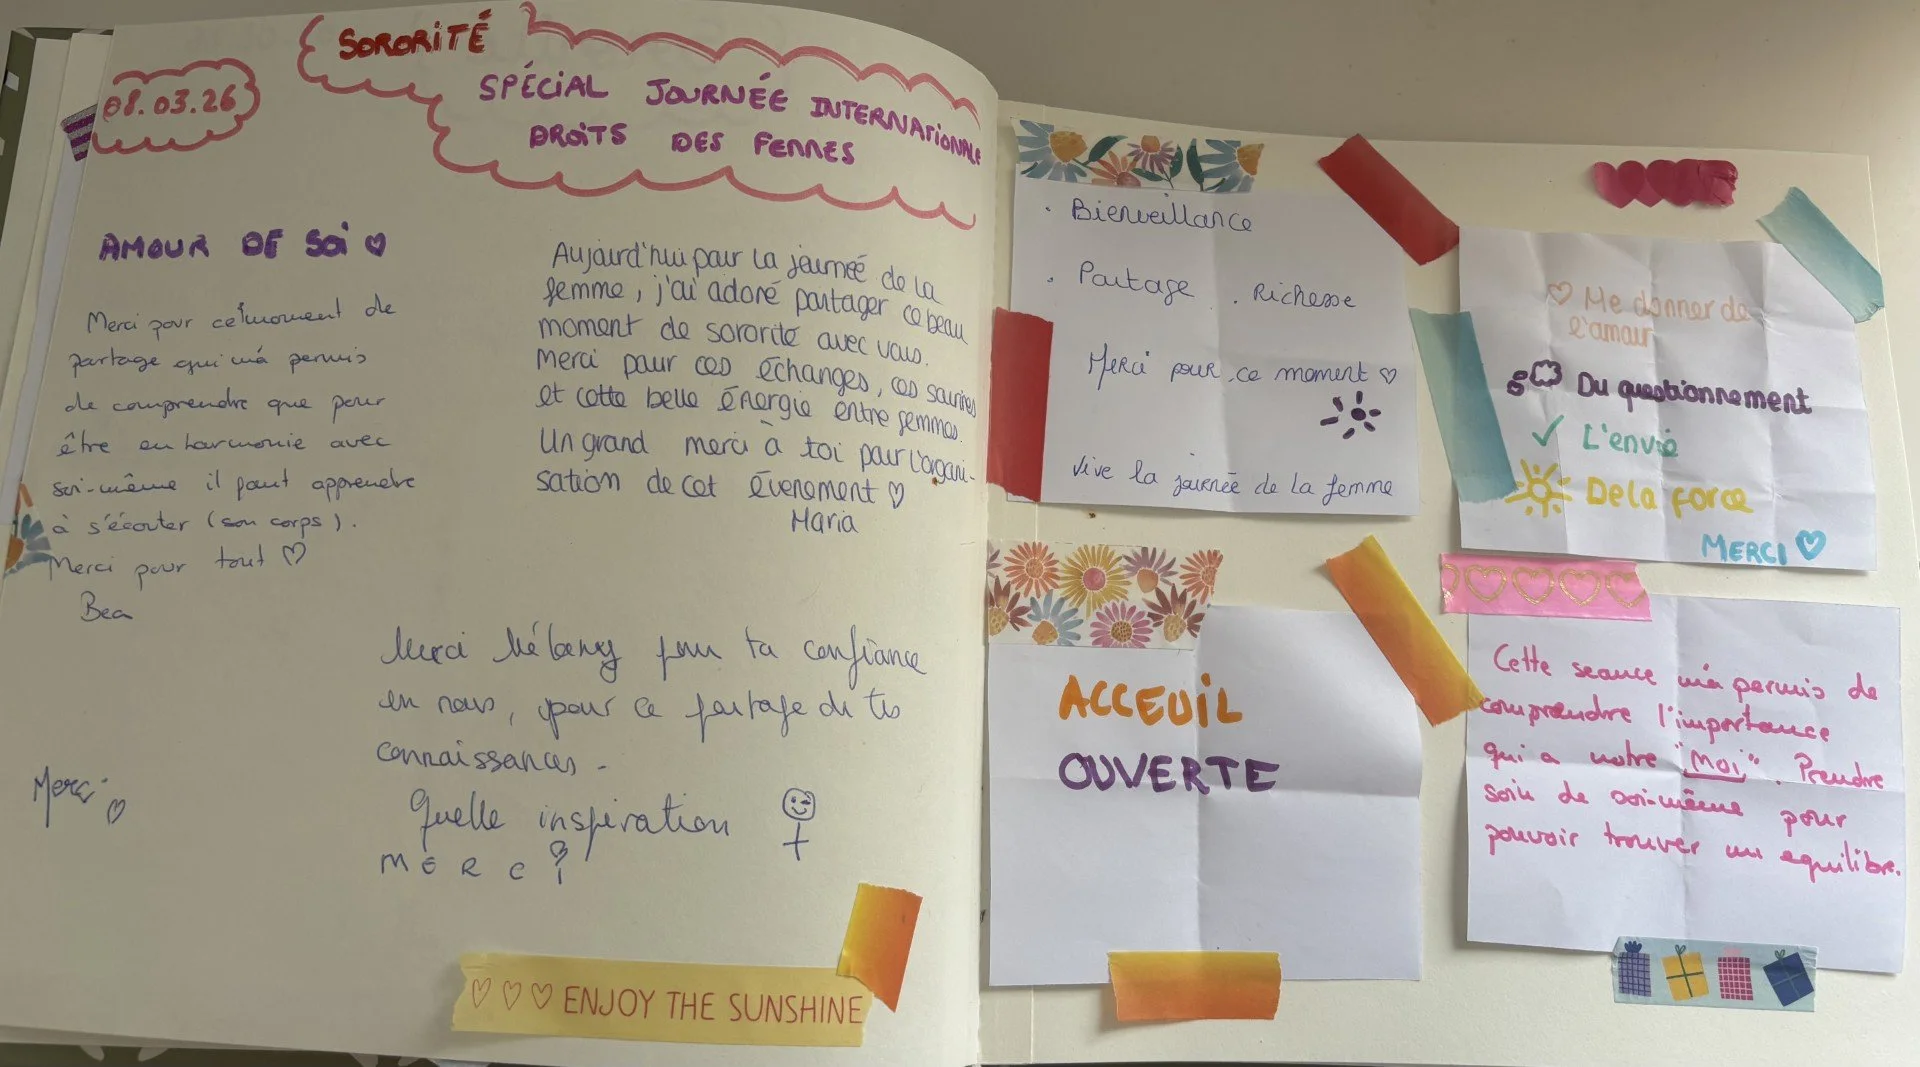 08.03.26
SORORITÉ
SPÉCIAL JOURNÉE INTERNATIONALE
DROITS DES FEMMES
AMOUR DE SOI ♡
Merci pour ce moment de
partage qui m'a permis
de comprendre que pour
être en harmonie avec
soi-même il faut apprendre
à s'écouter (son corps).
Merci pour tout ♡
Bea
Aujourd'hui pour la journée de la
femme, j'ai adoré partager ce beau
moment de sororité avec vous.
Merci pour ces échanges, ces sourires
et cette belle énergie entre femmes.
Un grand merci à toi pour l'organi-
sation de cet évènement ♡
Maria
Merci Mélany pour ta confiance
en nous, pour ce partage de tes
connaissances.
Quelle inspiration
MERCI
Merci ♡
♡♡♡ ENJOY THE SUNSHINE
. Bienveillance
. Partage . Richesse
Merci pour ce moment ♡
Vive la journée de la femme
♡ Me donner de
l'amour
Du questionnement
✓ L'envie
De la force
MERCI ♡
ACCEUIL
OUVERTE
Cette seance m'a permis de
comprendre l'importance
qui a notre "Moi". Prendre
soin de soi-même pour
pouvoir trouver un equilibre.